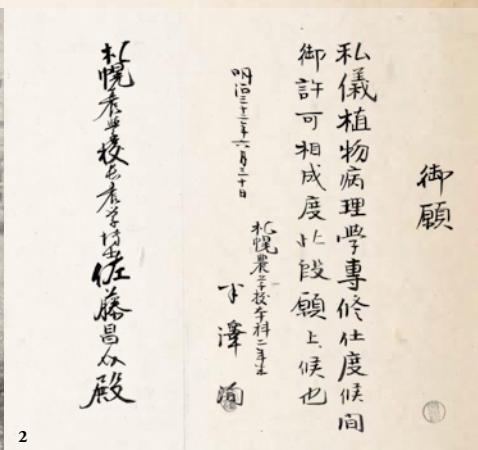 御願
私儀植物病理學専修仕度候間
御許可相成度此段願上候也
明治三十二年六月三十日
札幌農学校本科二年生
半澤洵
札幌農学校長農学博士佐藤昌介殿
2